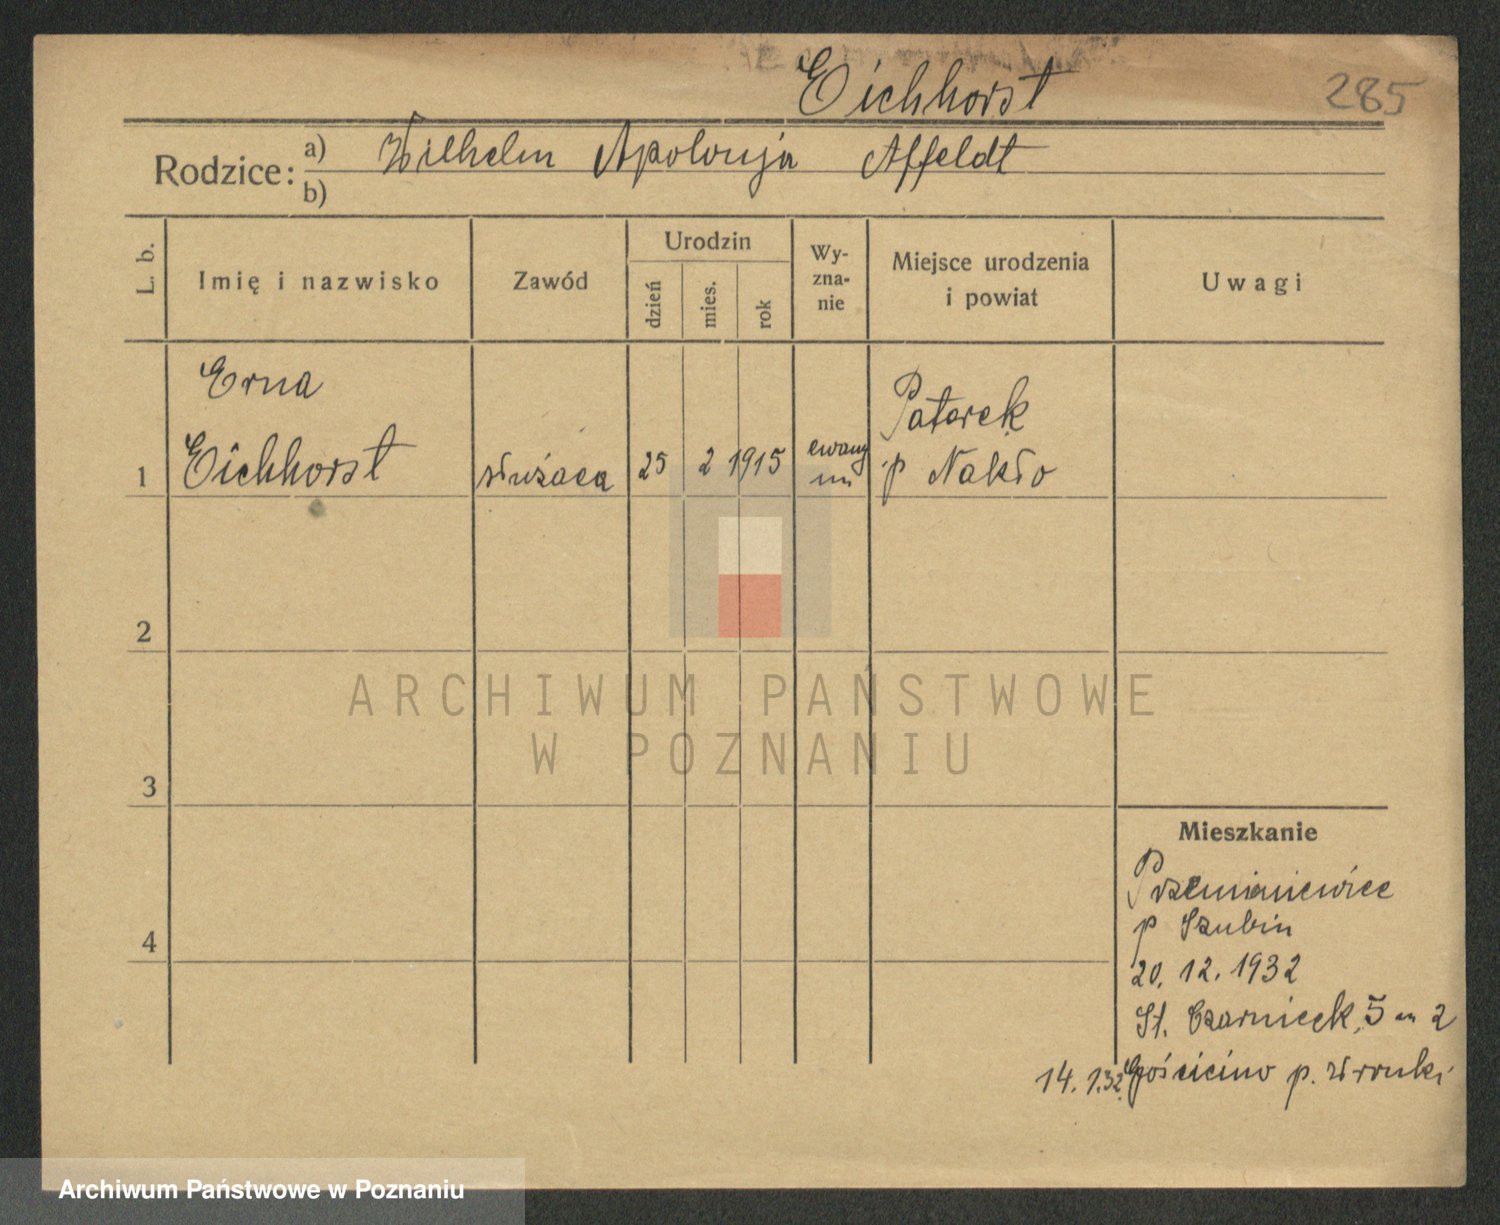 Eichhorst
285
Rodzice: a) Wilhelm Apolonja Affeldt
b)
L. b.
Imię i nazwisko
Zawód
Urodzin
dzień
mies.
rok
Wy-
zna-
nie
Miejsce urodzenia
i powiat
Uwagi
Erna
1 Eichhorst
służąca
25 2 1915
ewang
Paterek
p Nakło
2
3
4
ARCHIWUM PAŃSTWOWE
W POZNANIU
Mieszkanie
p Szubin
20. 12. 1932
St. Czarnieck. 5 m 2
14. 1.32. Gościcino p. Wronki
Archiwum Państwowe w Poznaniu